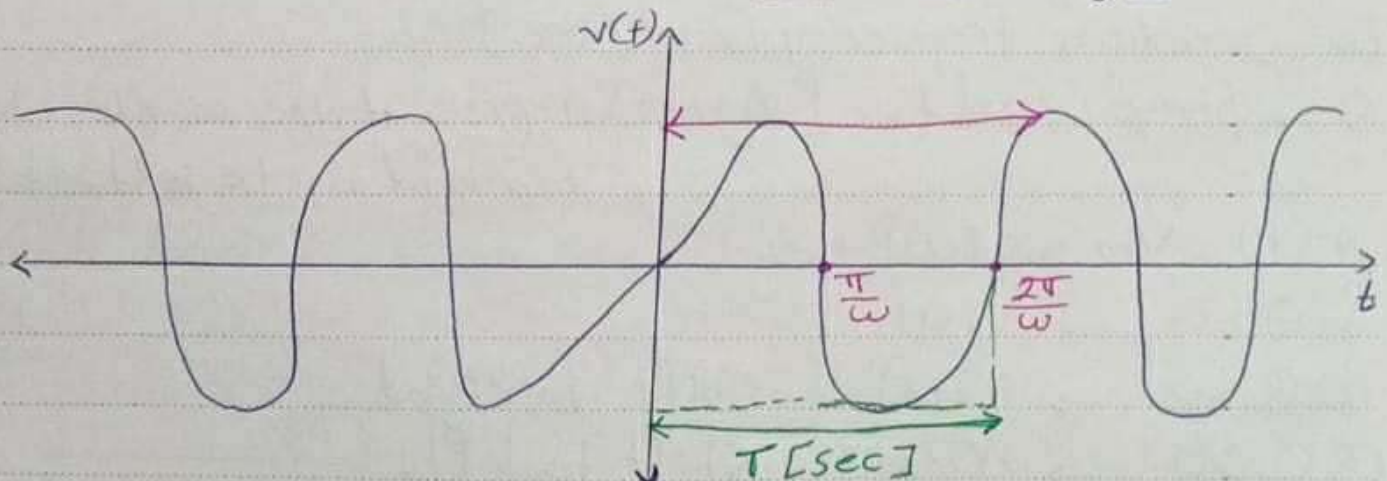 v(t)
π/ω
2π/ω
t
T [sec]